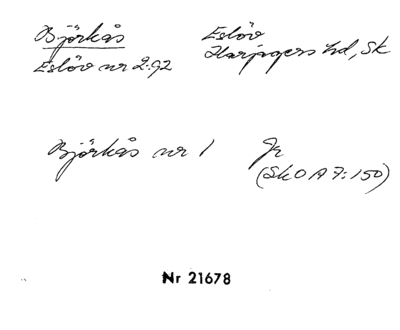 Björkås Eslöv
Eslöv nr 2:92 Harjagers hd, Sk
Björkås nr 1 Jr
(SkO A 7:150)
Nr 21678